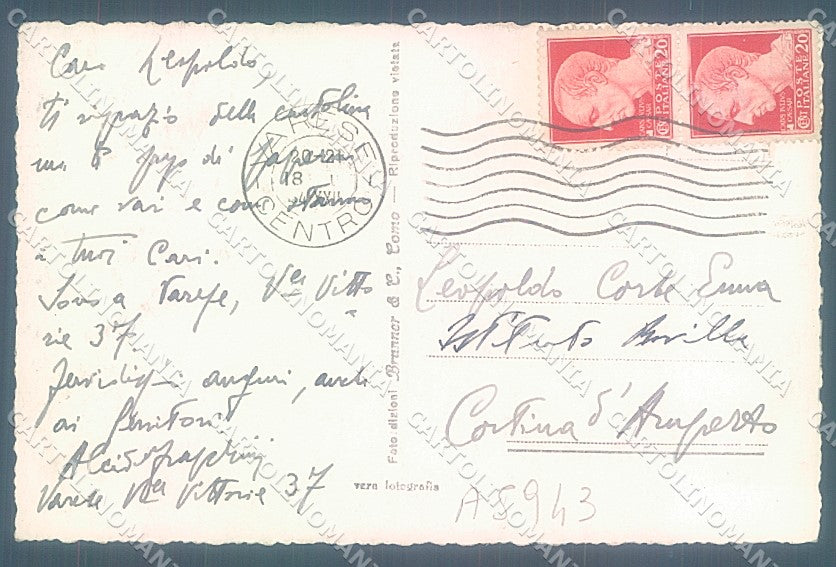 Caro Leopoldo,
ti ringrazio della cartolina
ma ti prego di
come vai e come stanno
i tuoi Cari.
Sono a Varese, Via Vitto
rie 37
auguri, anche
ai Genitori
Varese Via Vittorie 37
Foto dizioni Brunner & C., Como — Riproduzione vietata
vera fotografia
VARESE
CENTRO
20-12
18
POSTE
ITALIANE
20
POSTE
ITALIANE
20
Leopoldo Corte
Istituto
Cortina d'Ampezzo
A5943
CARTOLINOMANIA